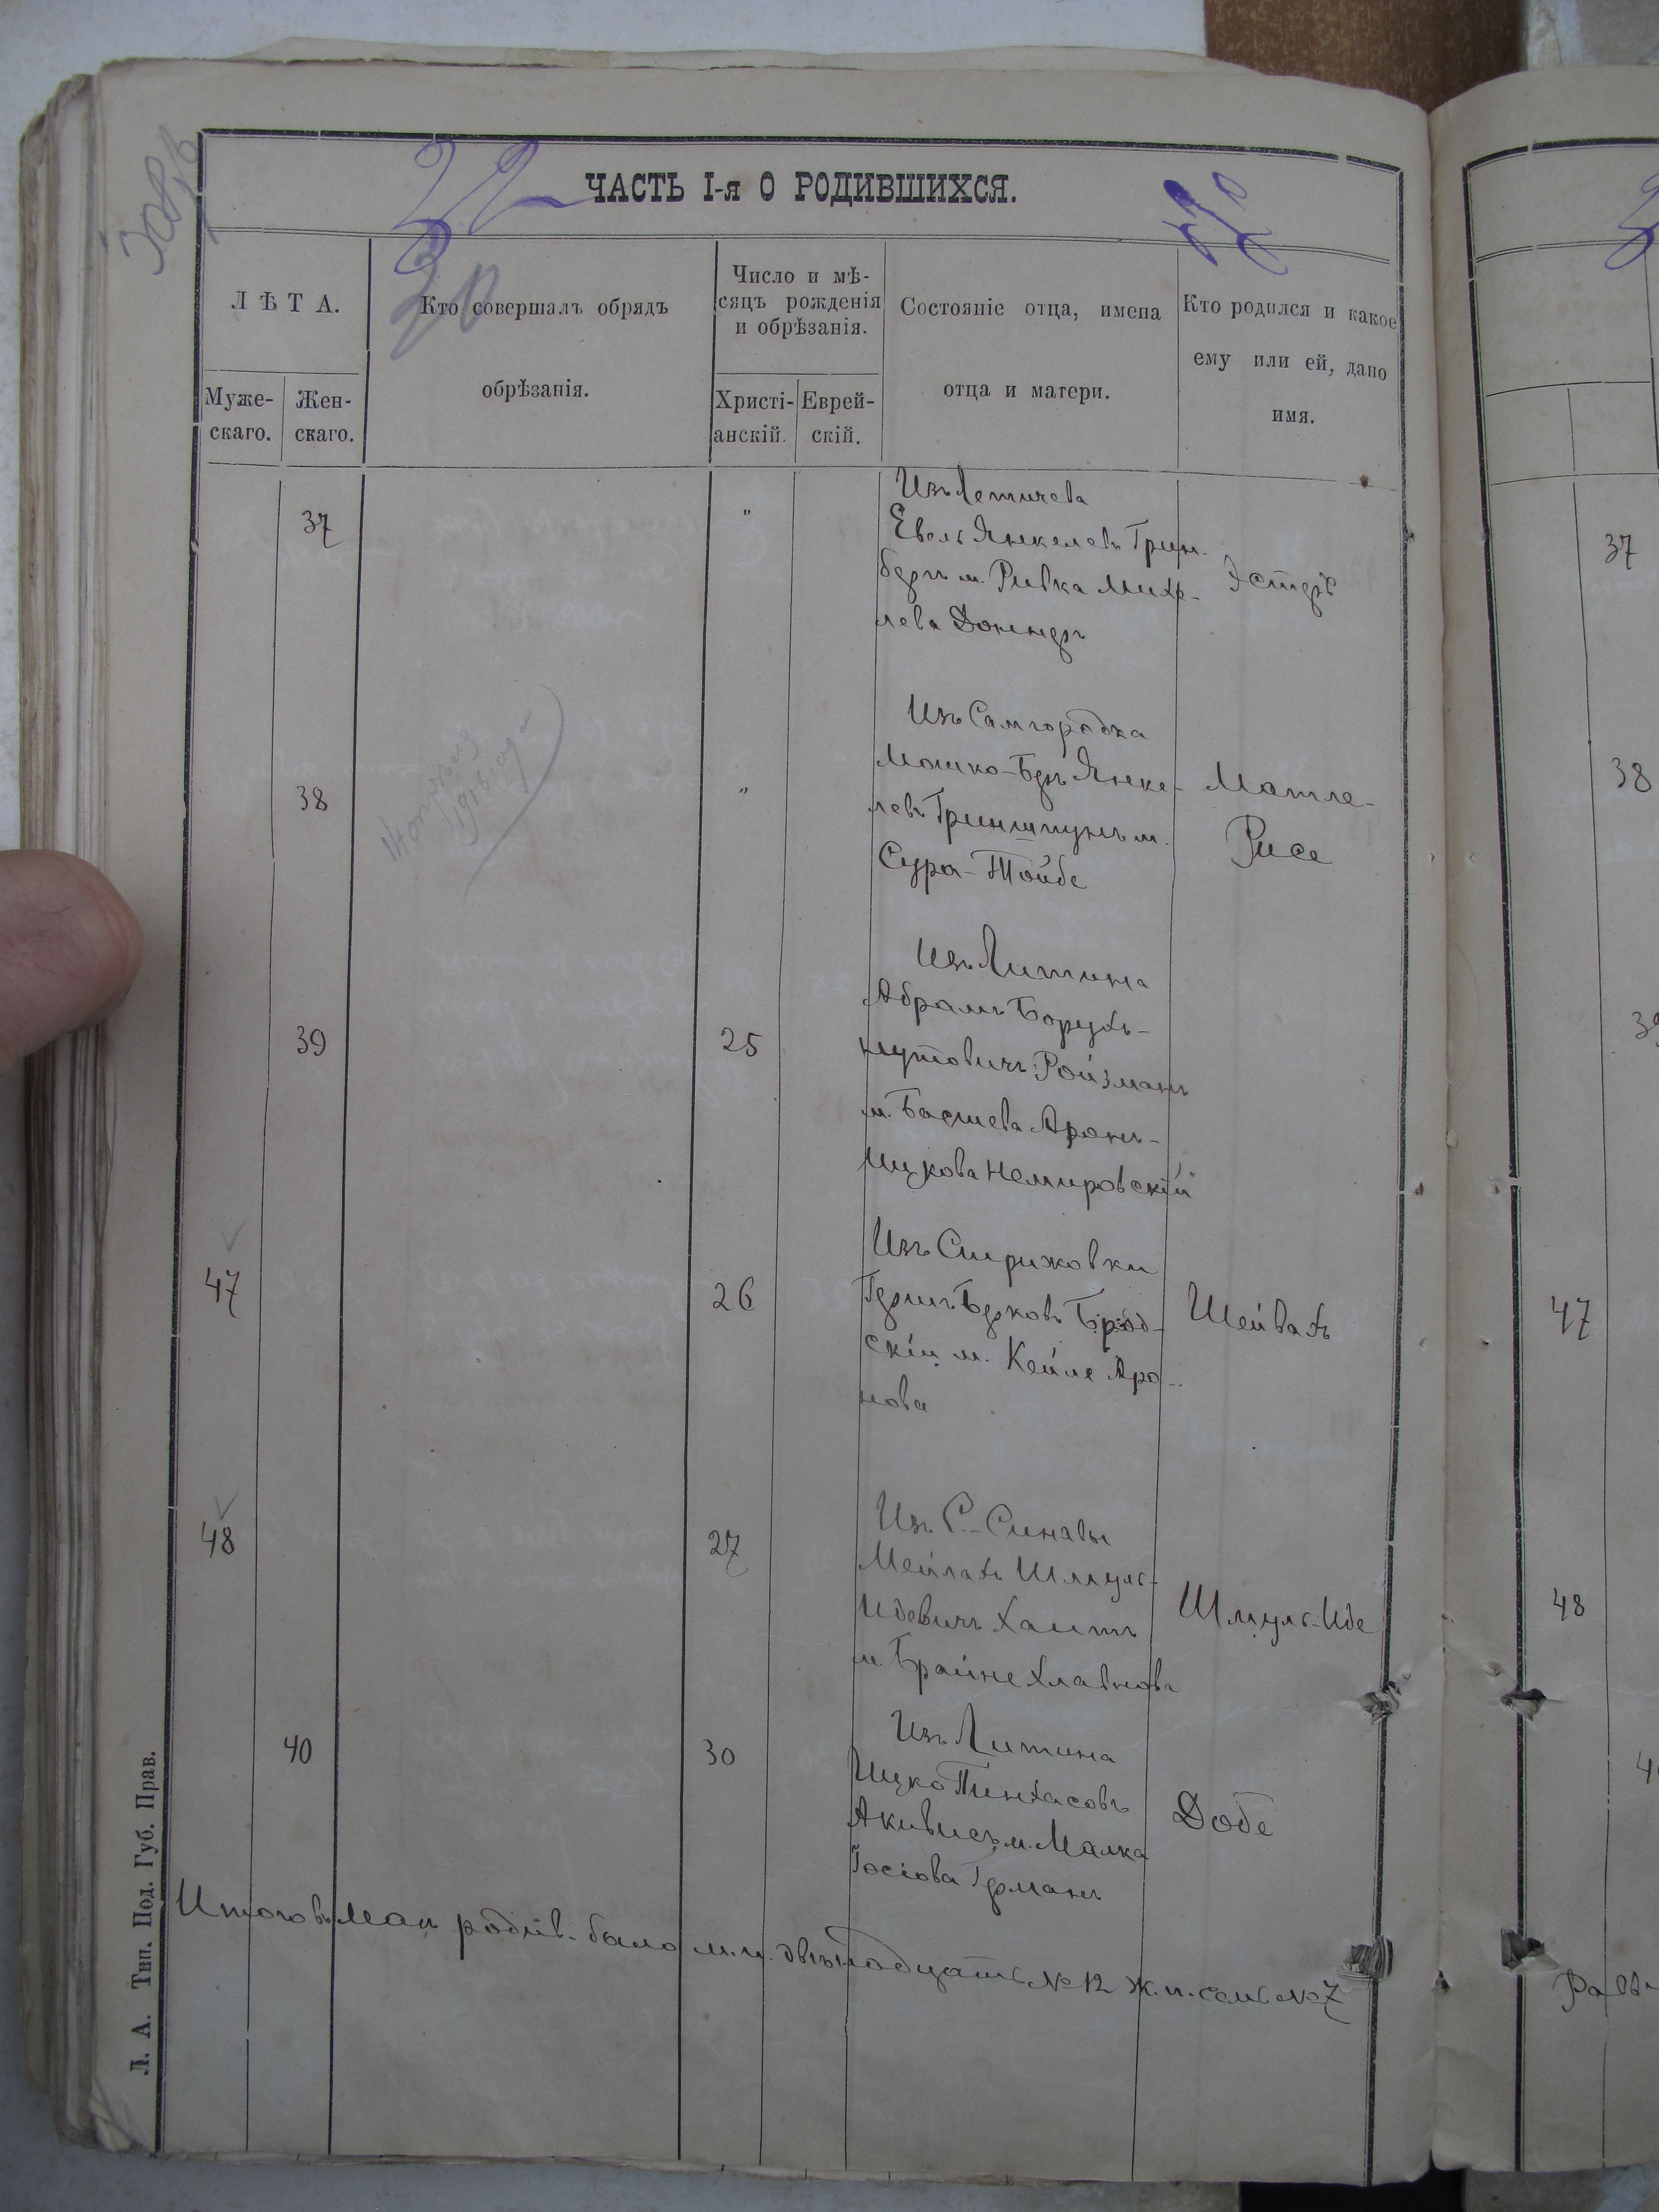 ЧАСТЬ I-я О РОДИВШИХСЯ.
ЛѢТА.
Муже-
скаго.
Жен-
скаго.
Кто совершалъ обрядъ
обрѣзанія.
Число и мѣ-
сяцъ рожденія
и обрѣзанія.
Христі-
анскій.
Еврей-
скій.
Состояніе отца, имена
отца и матери.
Кто родился и какое
ему или ей, дано
имя.
37
"
Изъ Летичева
Евель Янкелевъ Грин-
бергъ м. Ривка Михе-
лева
Эстеръ
38
"
1916 года
Изъ Самгородка
Мошко-Беръ Янке-
левъ Гриншпунъ м.
Сура-Тойбе
Матле-
Рисе
39
25
Изъ Литина
Абрамъ Борухъ-
Нутовичъ Ройзманъ
м. Басшева Аронъ-
Ицкова Немировскій
47
26
Изъ Стрижовки
Гершъ Берковъ Брод-
скій м. Кейле Аро-
нова
Шейвахъ
48
27
Изъ С.-Синявы
Мейлахъ Шмуль-
Идевичъ Хаитъ
м. Брайне Хлавнова
Шмуль-Иде
40
30
Изъ Литина
Ицко Пинхасовъ
Акивисъ м. Малка
Іосіова Германъ
Добе
Итого въ маѣ родив. было м.п. двѣнадцать № 12 ж.п. семь № 7
Л. А. Тип. Под. Губ. Прав.
37
38
47
48